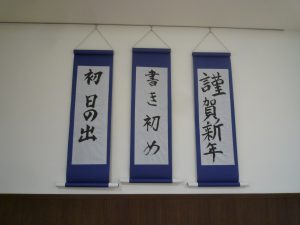 謹賀新年
書き初め
初日の出